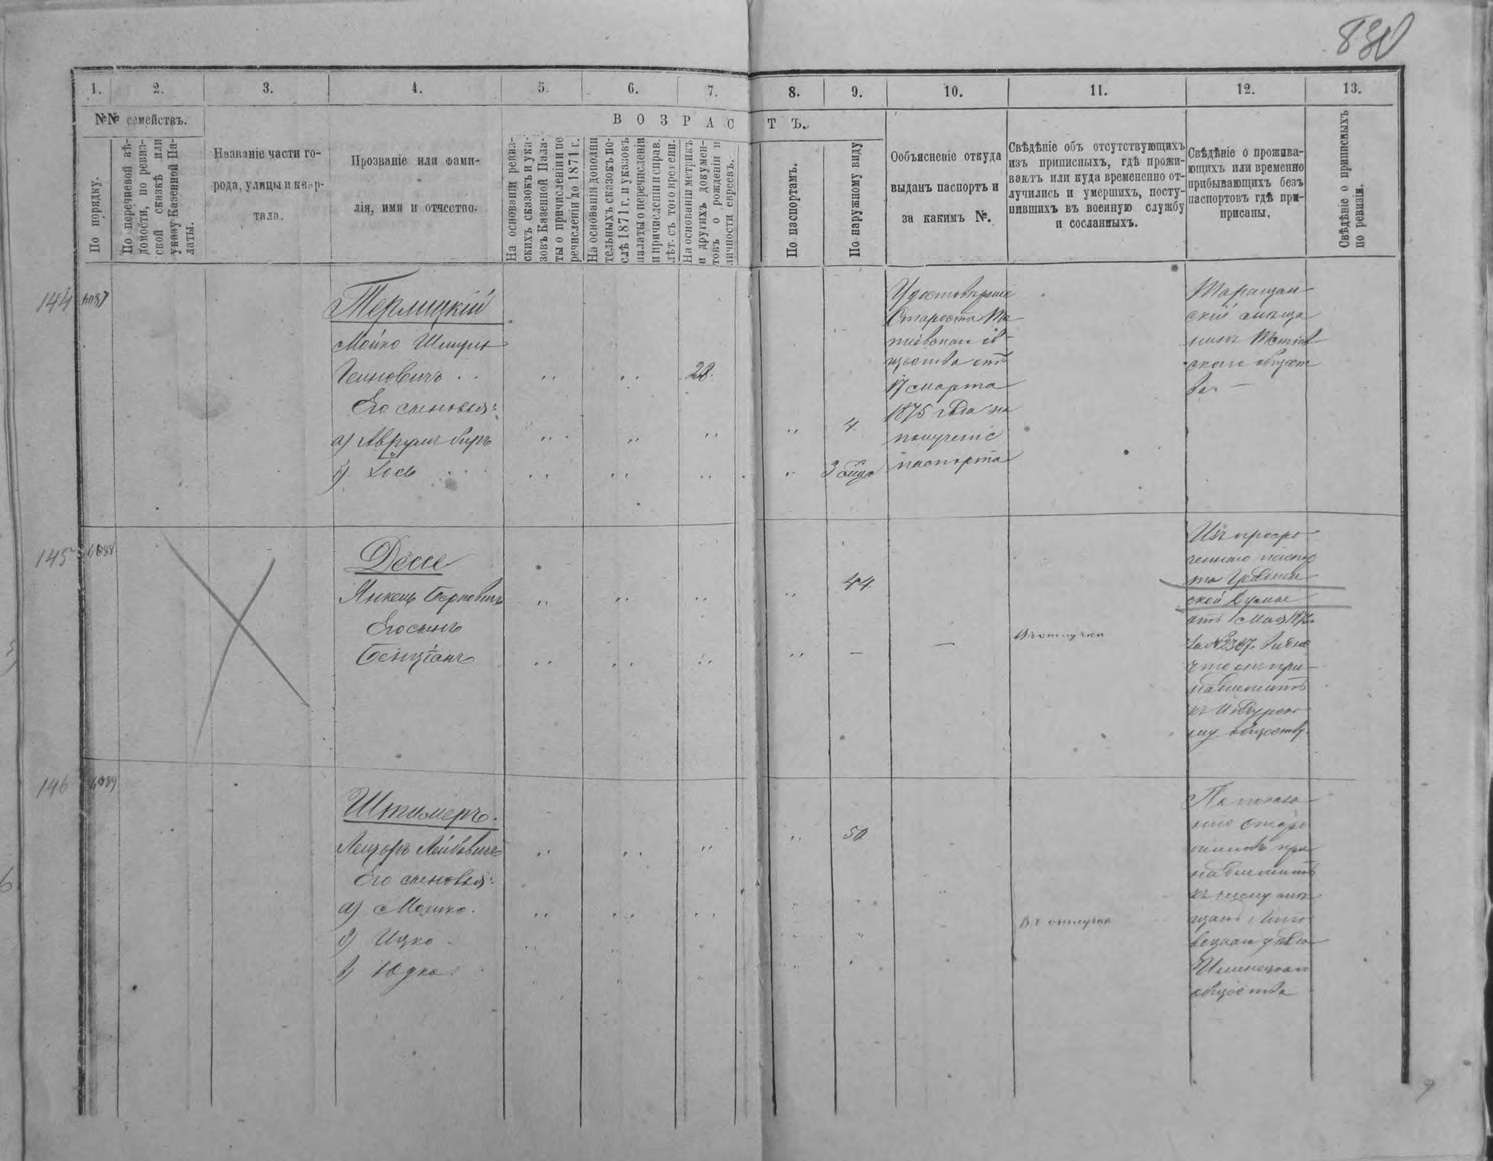 830
1. 2. 3. 4. 5. 6. 7. 8. 9. 10. 11. 12. 13.
№№ семействъ.
ВОЗРАСТЪ.
По порядку.
По перечневой вѣ-
домости, по ревиз-
ской сказкѣ или
указу Казенной Па-
латы.
Названіе части го-
рода, улицы и квар-
тала.
Прозваніе или фами-
лія, имя и отчество.
На основаніи ревиз-
скихъ сказокъ и ука-
зовъ Казенной Пала-
ты о причисленіи и пе
речисленіи до 1871 г.
На основаніи дополни
тельныхъ сказокъ по-
слѣ 1871 г. и указовъ
палаты о перечисленіи
и причисленіи и справ.
лѣт. съ того времени.
На основаніи метрикъ
и другихъ докумен-
товъ о рожденіи и
личности евреевъ.
По паспортамъ.
По наружному виду
Ообъясненіе откуда
выданъ паспортъ и
за какимъ №.
Свѣдѣніе объ отсутствующихъ
изъ приписныхъ, гдѣ прожи-
ваютъ или куда временно от-
лучились и умершихъ, посту-
пившихъ въ военную службу
и сосланныхъ.
Свѣдѣніе о прожива-
ющихъ или временно
прибывающихъ безъ
паспортовъ гдѣ при-
приисаны.
Свѣдѣніе о приписныхъ
по ревизіи.
144 6087
Терлицкій
Мойко Шмуль
. .
Его сыновья:
а) Аврумъ Беръ
б) Іось . . .
28.
4
3
Удостовѣреніе
Старосты
общества отъ
17 марта
1875 года на
полученіе
паспорта
Таращан-
скій мѣща
нинъ
скаго общест
ва. —
145 6088
Десе
Янкель Берковичъ
Его сынъ
Бенціонъ
44
—
—
Въ отлучкѣ
Изъ просро
ченнаго паспор
та
ской Думы
отъ 1 Мая
за № 2387. видно
что онъ при-
надлежитъ
къ
му обществу
146 6089
Штилеръ.
Лейзоръ Лейбовичъ
Его сыновья:
а) Мошко.
б) Ицко
в) Юдка.
50
Въ отлучкѣ
По показа
нію
при
надлежитъ
къ числу мѣ-
щанъ Липо
вецкаго уѣзда
Илинецкаго
общества